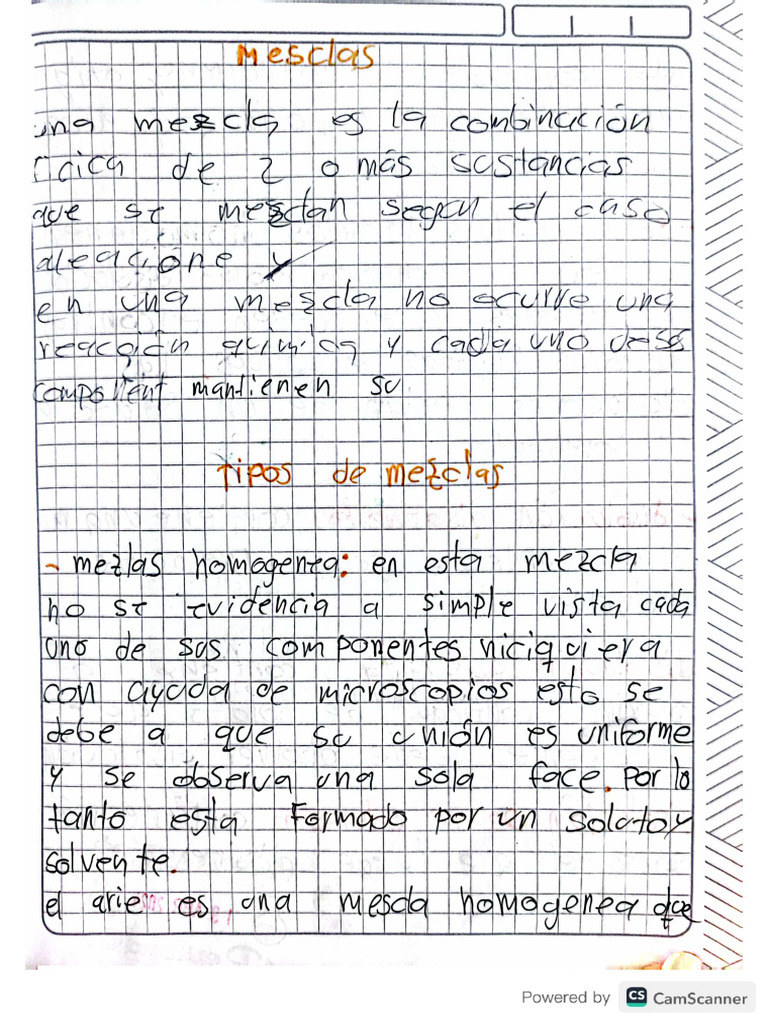 Mesclas
una mezcla es la combinación
física de 2 o más sustancias
que se mezclan segun el caso
aleacióne y
en una mezcla no ocurre una
reacción quimica y cada uno de sus
component mantienen su
tipos de mezclas
- mezlas homogenea: en esta mezcla
no se evidencia a simple vista cada
uno de sus componentes niciquiera
con ayuda de microscopios esto se
debe a que su unión es uniforme
y se observa una sola face. Por lo
tanto esta Formado por un soluto y
solvente.
el arie es una mescla homogenea que
Powered by CS CamScanner